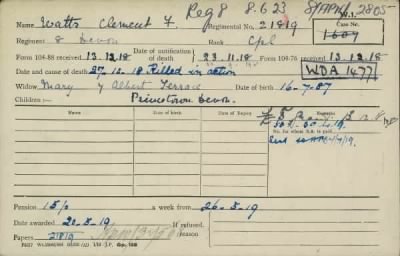 Reg 8 8.6.23 W.I. 2805
Name Watts Clement F. Regimental No. 21819 Case No. 1604
Regiment 8 Devon Rank Cpl
Form 104-88 received 13.12.18 Date of notification of death 23.11.18 Form 104-76 received 13.12.18
WDA 1477
Date and cause of death 27.10.18 Killed in action
Widow Mary 4 Albert Terrace Date of birth 16-7-87
Children:— Princetown Devon.
Name Date of Birth Date of Expiry Remarks
No. for whom S.A. is paid
Pension 15/0 a week from 26-5-19
Date awarded If refused,
Papers 21819 Reason